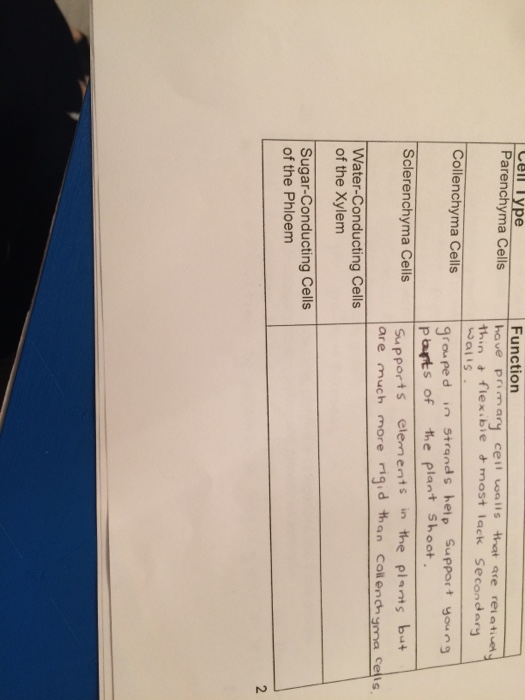 Cell Type Function
Parenchyma Cells
have primary cell walls that are relatively
thin & flexible & most lack secondary
walls.
Collenchyma Cells
grouped in strands help support young
parts of the plant shoot.
Sclerenchyma Cells
supports elements in the plants but
are much more rigid than collenchyma cells.
Water-Conducting Cells
of the Xylem
Sugar-Conducting Cells
of the Phloem
2